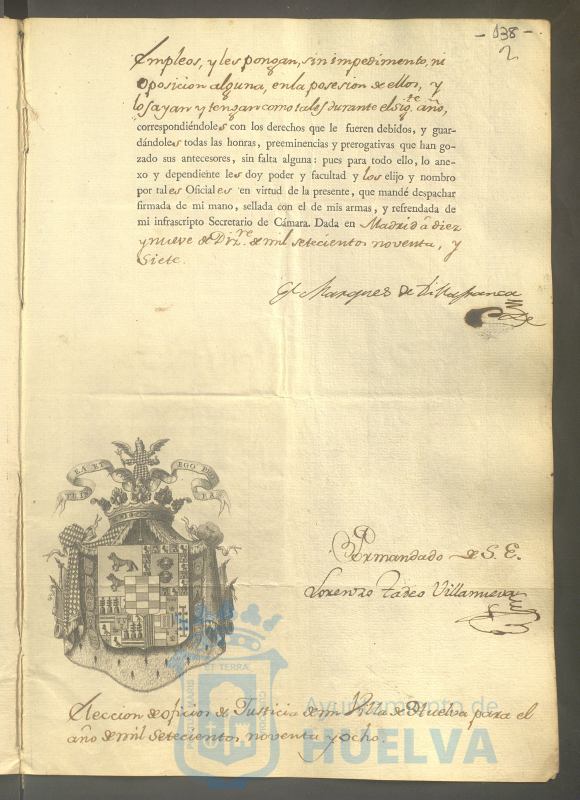 - 138 -
2
Empleos, y les pongan, sin impedimento, ni
oposicion alguna, en la posesion de ellos, y
los ayan y tengan como tales durante el sig.te año,
correspondiéndoles con los derechos que le fueren debidos, y guar-
dándoles todas las honras, preeminencias y prerogativas que han go-
zado sus antecesores, sin falta alguna: pues para todo ello, lo ane-
xo y dependiente les doy poder y facultad y los elijo y nombro
por tales Oficiales en virtud de la presente, que mandé despachar
firmada de mi mano, sellada con el de mis armas, y refrendada de
mi infrascripto Secretario de Cámara. Dada en Madrid á diez
y nueve de Diz.re de mil setecientos noventa, y
Siete.
El Marques de Villafranca
EA ET EGO PRO
Por mandado de S. E.
Lorenzo Tadeo Villanueva
ET TERRA
Eleccion de oficios de Justicia de mi Villa de Huelva para el
año de mil setecientos, noventa y ocho.
Ayuntamiento de
HUELVA